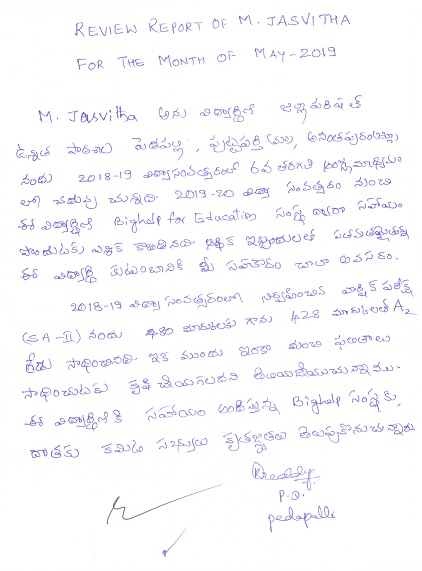 REVIEW REPORT OF M. JASVITHA
FOR THE MONTH OF MAY-2019
M. Jasvitha అను విద్యార్థిని జిల్లా పరిషత్
ఉన్నత పాఠశాల పెడపల్లి, పుట్టపర్తి (మం), అనంతపురం (జిల్లా)
నందు 2018-19 విద్యాసంవత్సరంలో 8వ తరగతి ఆంగ్లమాధ్యమం
లో చదువు చున్నది. 2019-20 విద్యా సంవత్సరం నుంచి
ఈ విద్యార్థిని Bighelp for Education సంస్థ ద్వారా సహాయం
పొందుటకు ఎన్నిక కాబడినది. ఆర్థిక ఇబ్బందులతో సతమతమౌతున్న
ఈ విద్యార్థి కుటుంబానికి మీ సహకారం చాలా అవసరం.
2018-19 విద్యా సంవత్సరంలో నిర్వహించిన వార్షిక పరీక్ష
(SA-II) నందు 480 మార్కులకు గాను 428 మార్కులతో A2
గ్రేడు సాధించినది. ఇక ముందు ఇంకా మంచి ఫలితాలు
సాధించుటకు కృషి చేయగలదని తెలియజేయుచున్నాము.
ఈ విద్యార్థినికి సహాయం అందిస్తున్న Bighelp సంస్థకు,
దాతకు కమిటి సభ్యులు కృతజ్ఞతలు తెలుపుకొనుచున్నారు
P.O.
pedapalli